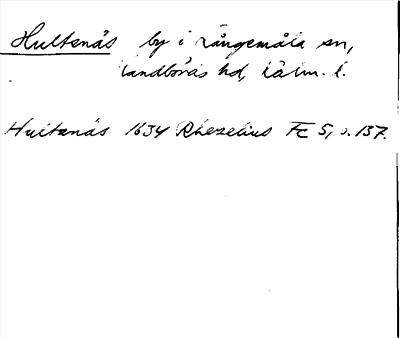 Hultenäs by i Långemåla sn,
Handbörds hd, Kalm. l.
Hultenäs 1634 Rhezelius Fc 5, s. 137.